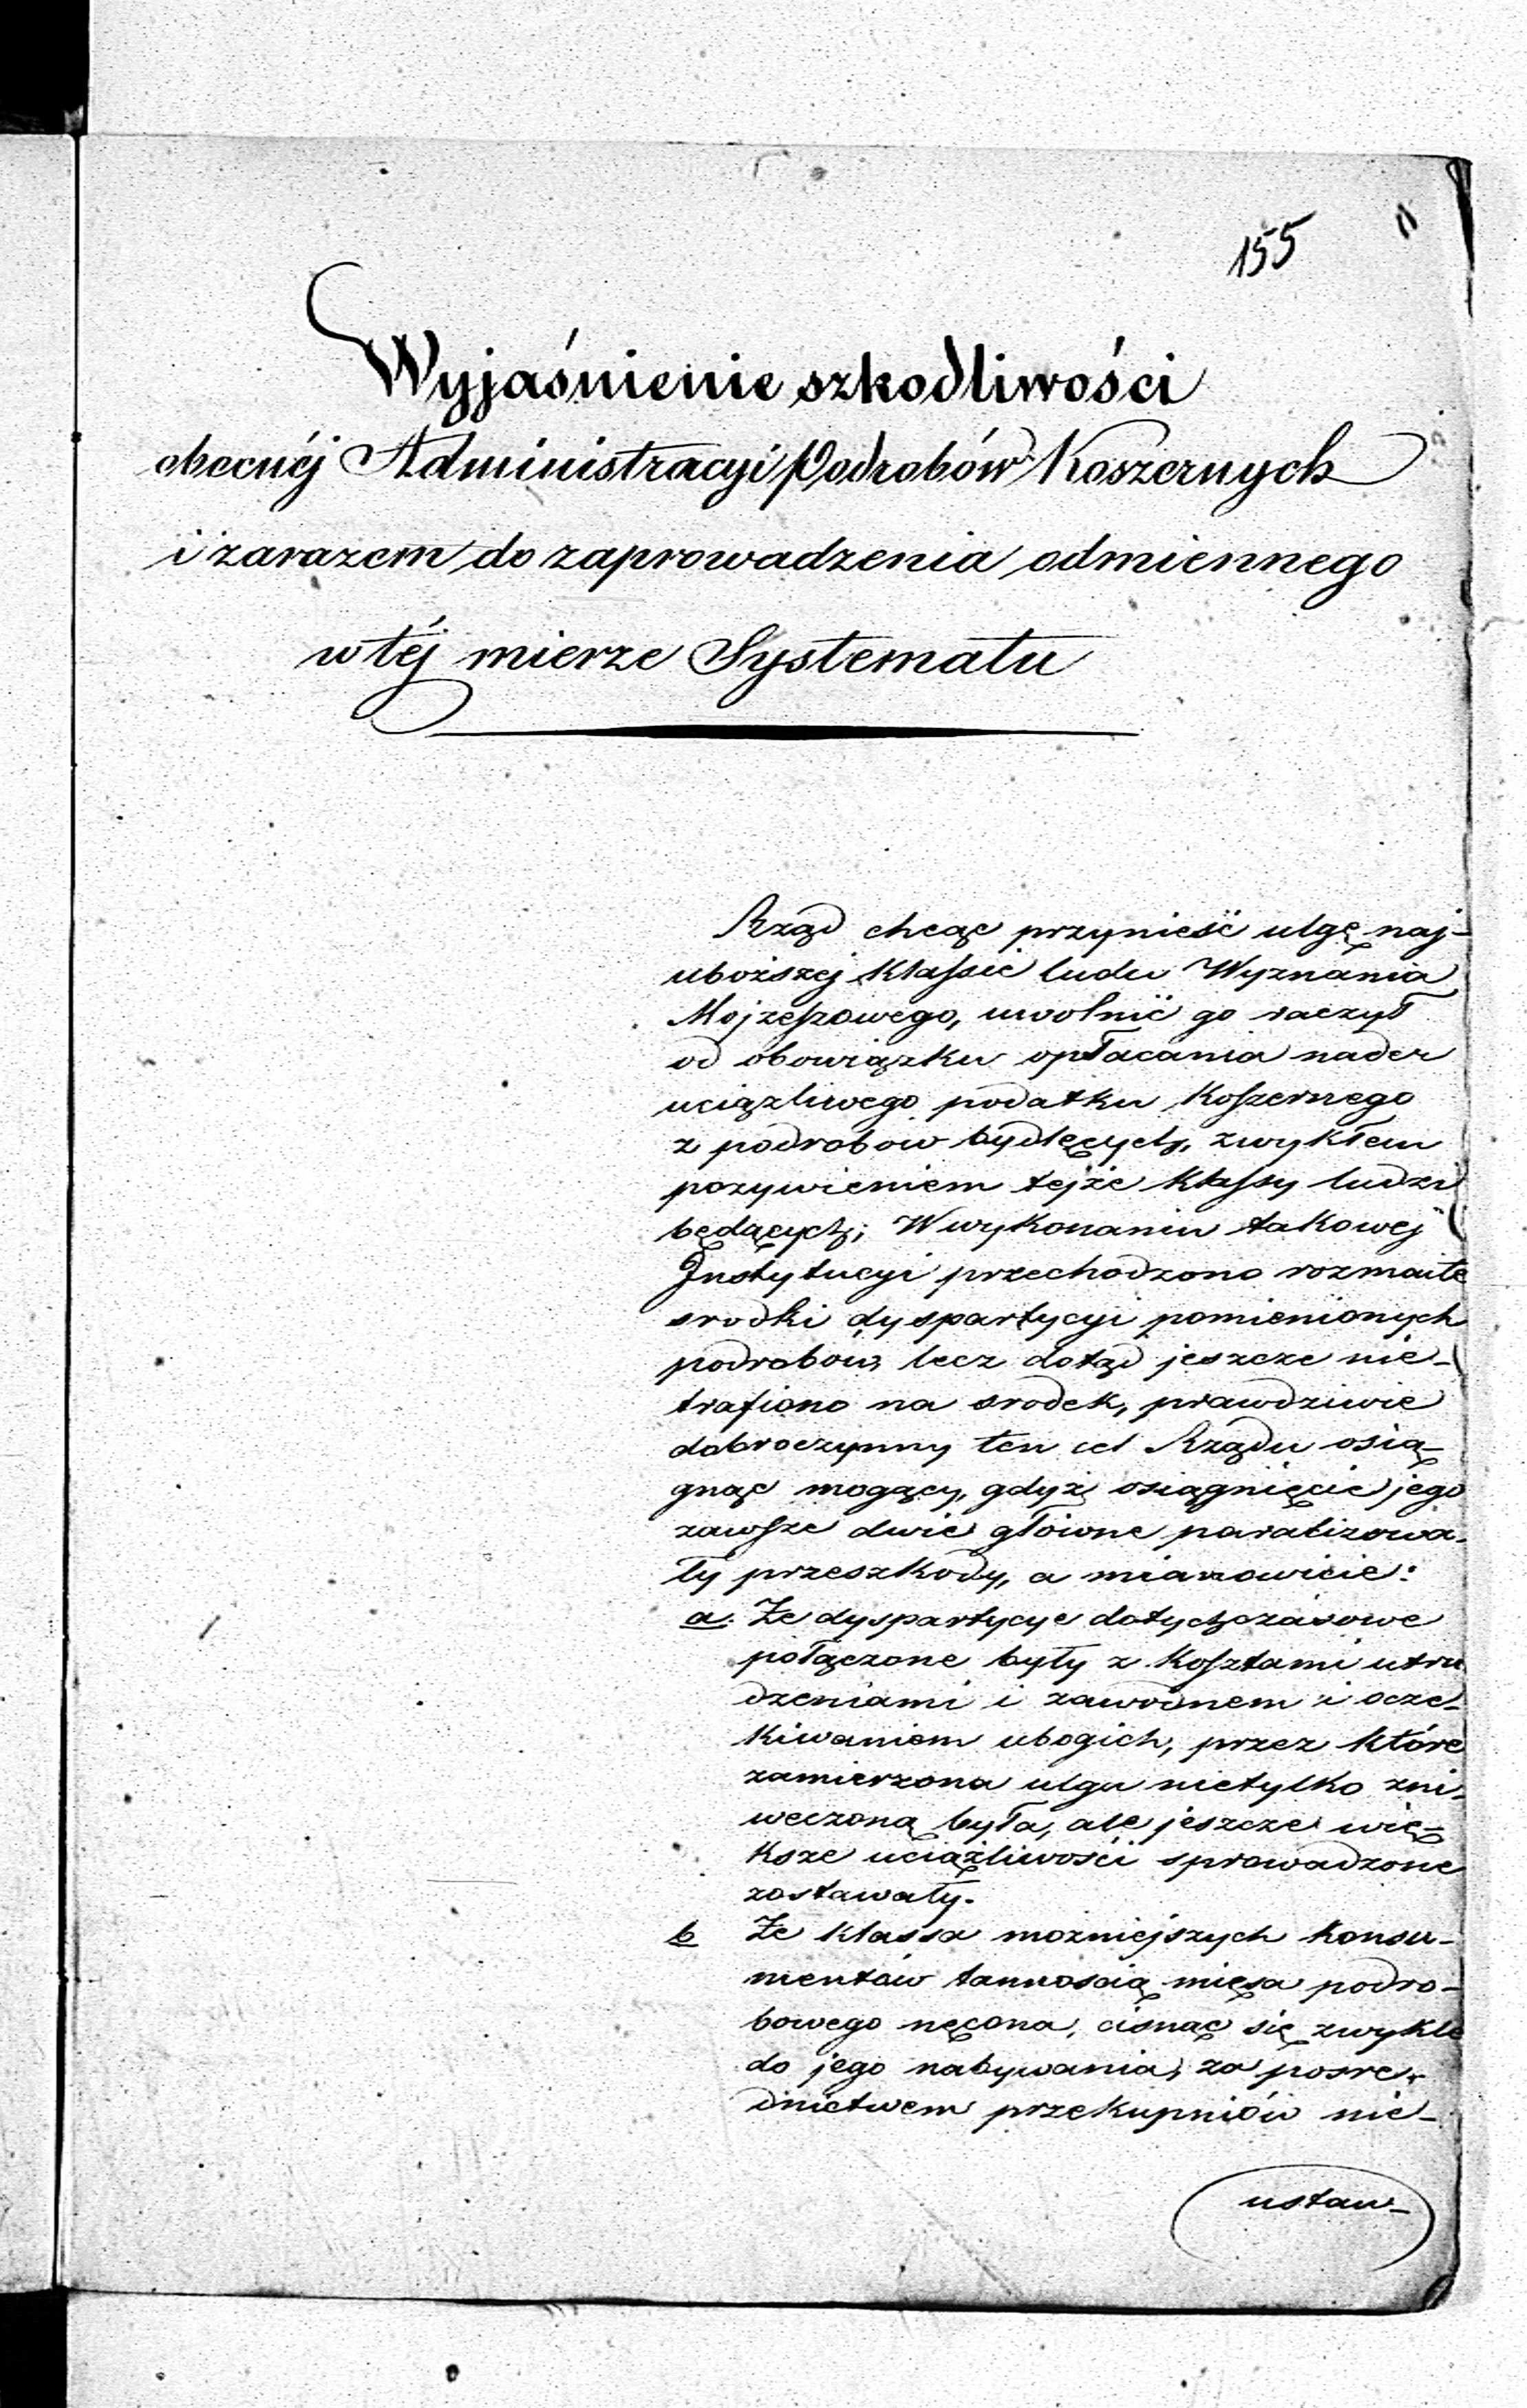 155
Wyjaśnienie szkodliwości
obecnéj Administracyi Podrobów Koszernych
i zarazem do zaprowadzenia odmiennego
w téj mierze Systematu
Rząd chcąc przynieść ulgę naj-
uboższej klassie ludu Wyznania
Mojzeszowego, uwolnić go raczył
od obowiązku opłacania nader
uciązliwego podatku koszernego
z podrobow bydlęcych, zwykłem
pozywieniem tejże klassy ludzi
będących; W wykonaniu takowej
Instytucyi przechodzono rozmaite
srodki dyspartycyi pomienionych
podrobow, lecz dotąd jeszcze nie-
trafiono na srodek, prawdziwie
dobroczynny ten cel Rządu osią-
gnąć mogący, gdyż osiągnięcie jego
zawsze dwie główne paralizowa-
ły przeszkody, a mianowicie:
a. Że dyspartycye dotychczasowe
połączone były z kosztami utru
dzeniami i zawodnem i ocze-
kiwaniem ubogich, przez które
zamierzona ulga nietylko zni-
weczoną była, ale jeszcze wię-
ksze uciążliwości sprowadzone
zostawały.
b Że klassa mozniejszych konsu-
mentów tannoscią mięsa podro-
bowego nęcona, cisnąć się zwykle
do jego nabywania, za posre-
dnictwem przekupniów nie-
ustaw-